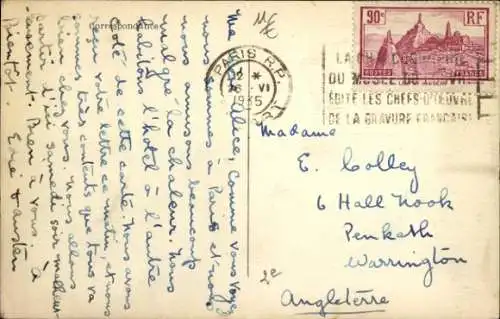 Correspondance
Ma
Alice, Comme vous voyez
nous sommes à Paris et nous
nous amusons beaucoup
malgré la chaleur. Nous
habitons l'hôtel à l'autre
Côté de cette carte. Nous avons
reçu votre lettre ce matin, et nous
sommes très contents que tous va
bien chez vous. Nous allons
partir d'ici samedi soir malheur-
eusement. Bien à vous. À
Bientôt.
90c RF
PARIS R.P.
12 *
6 VI
1935
DU MUSÉE DU
ÉDITE LES CHEFS-D'ŒUVRE
DE LA GRAVURE FRANÇAISE
Madame
E. Colley
6 Hall Nook
Penketh
Warrington
Angleterre
2e